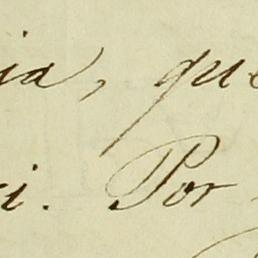 ia, que
i. Por